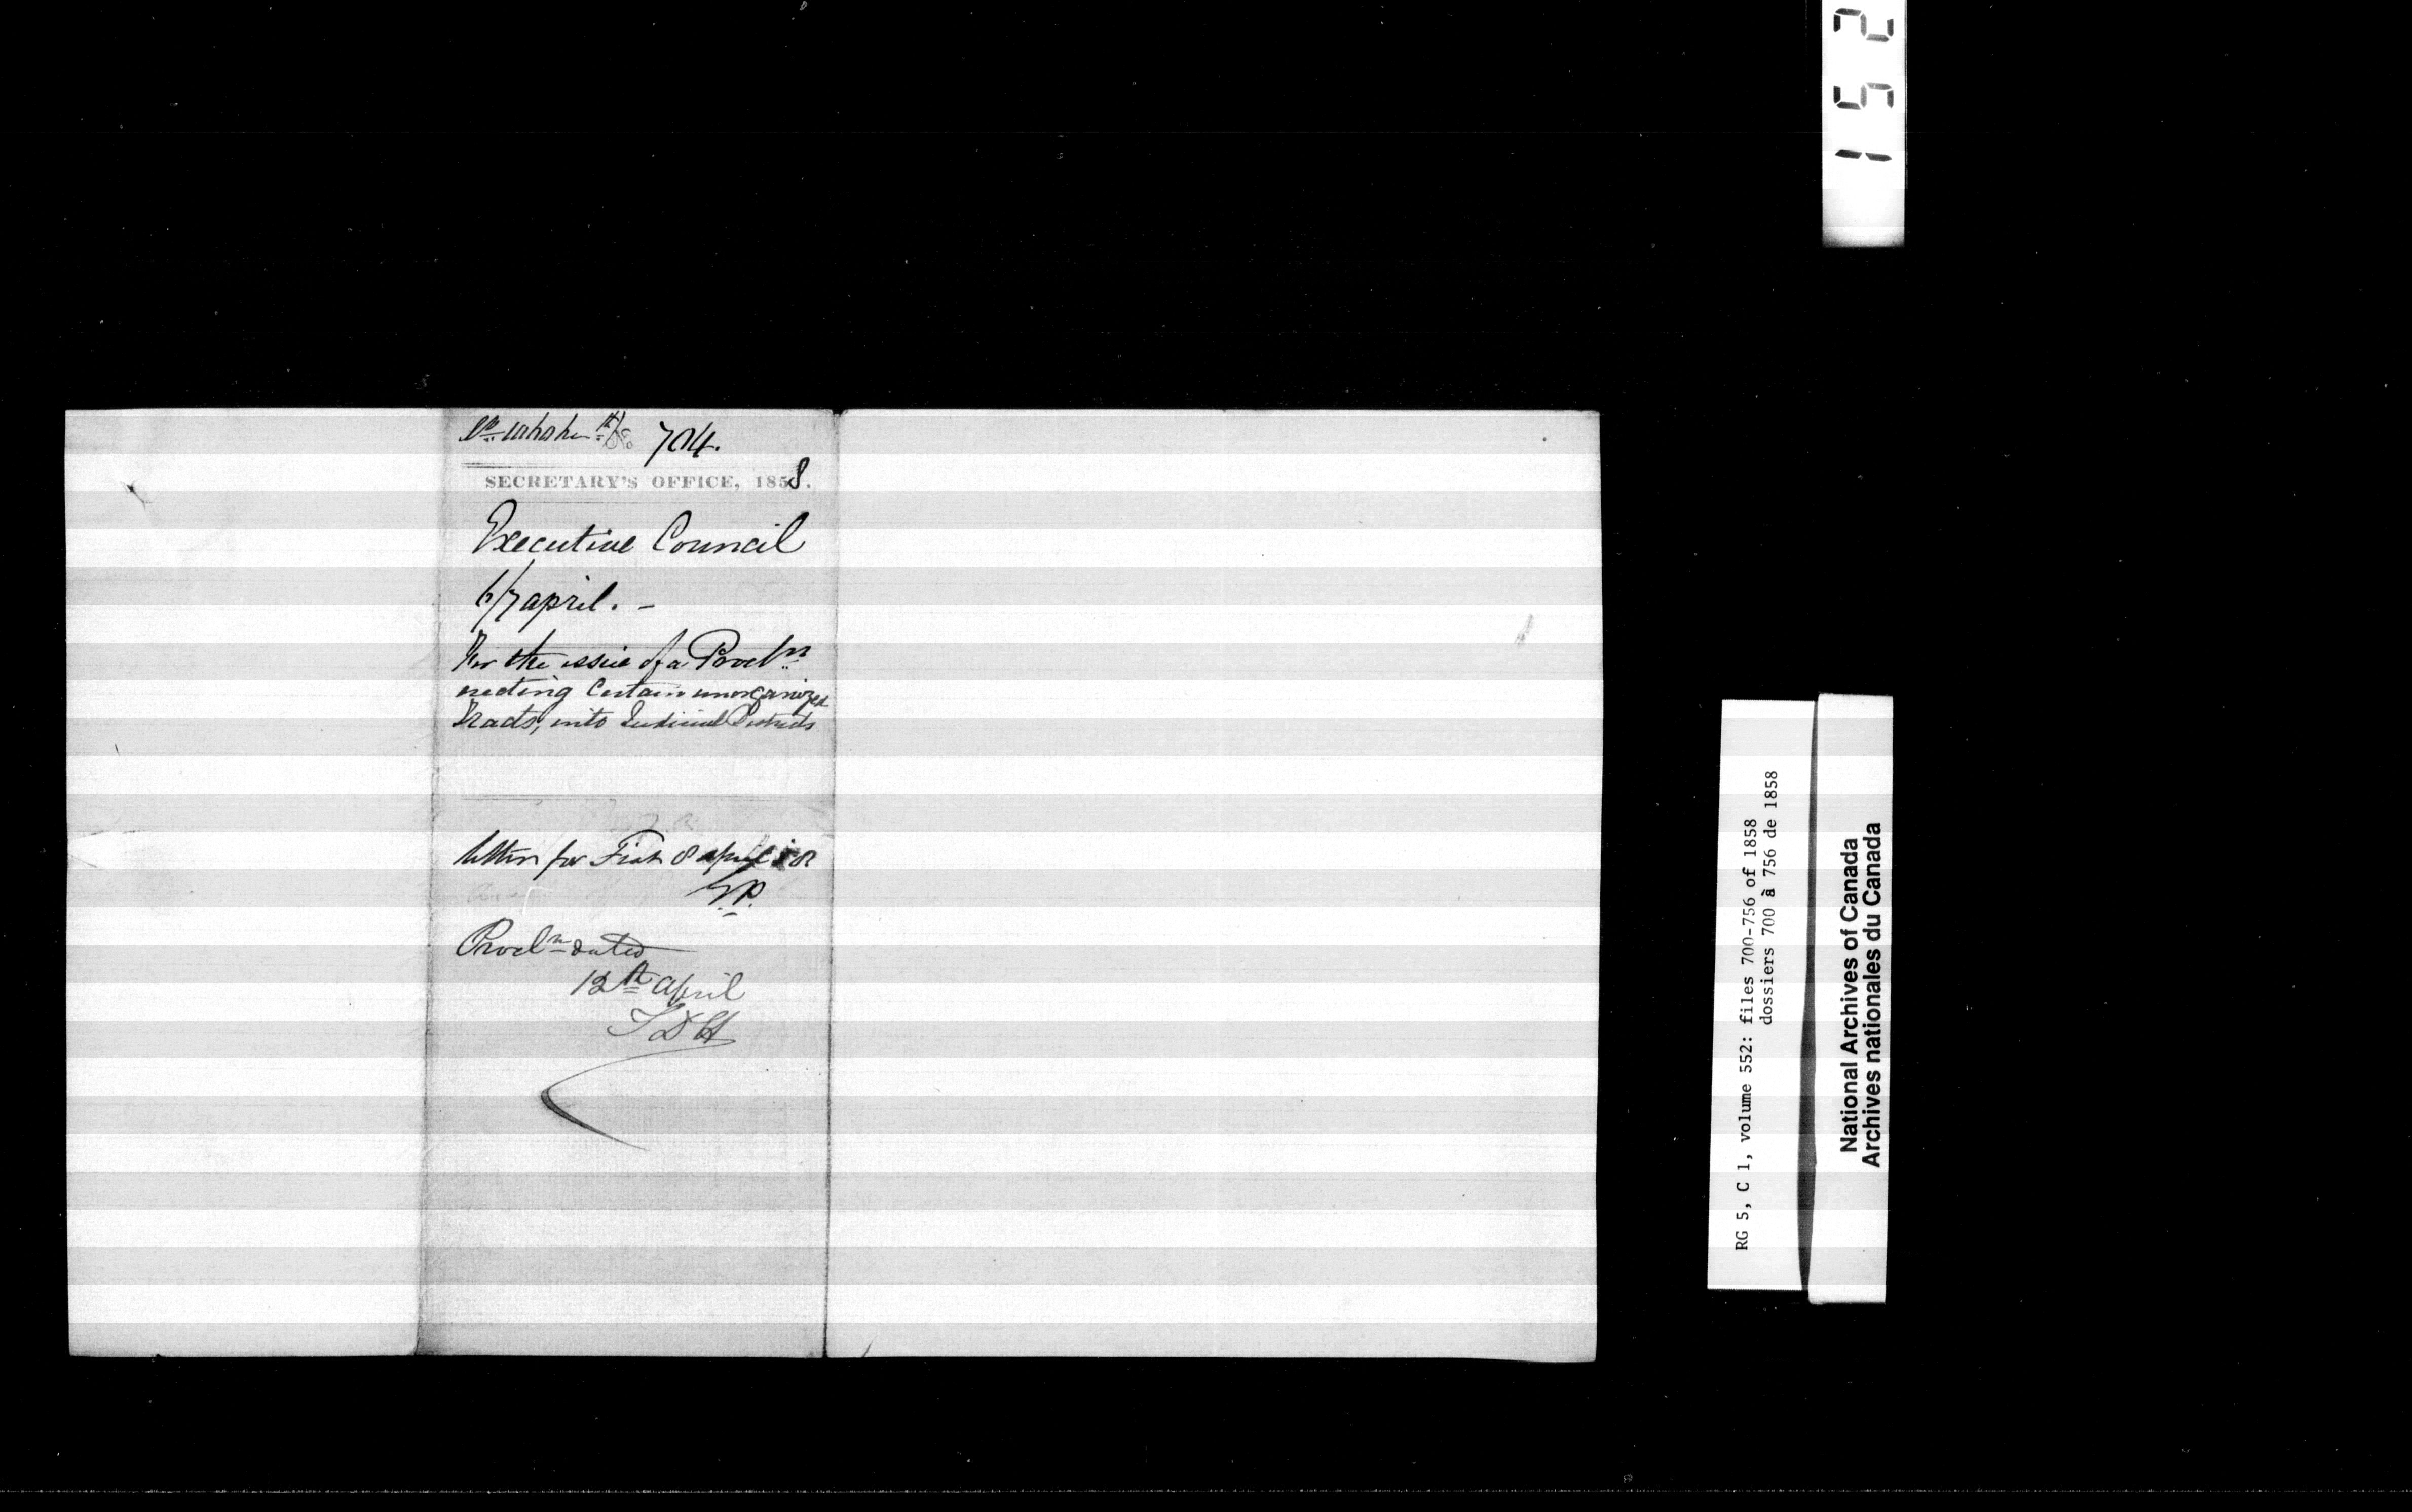 No. 704.
SECRETARY'S OFFICE, 1858.
Executive Council
6/7 april. -
For the issue of a Procl^n
erecting Certain unorganized
Tracts, into Judicial Districts
letter for Fiat 8 april 58
Procl^n dated
12^th april
TDH
152
RG 5, C 1, volume 552: files 700-756 of 1858
dossiers 700 à 756 de 1858
National Archives of Canada
Archives nationales du Canada